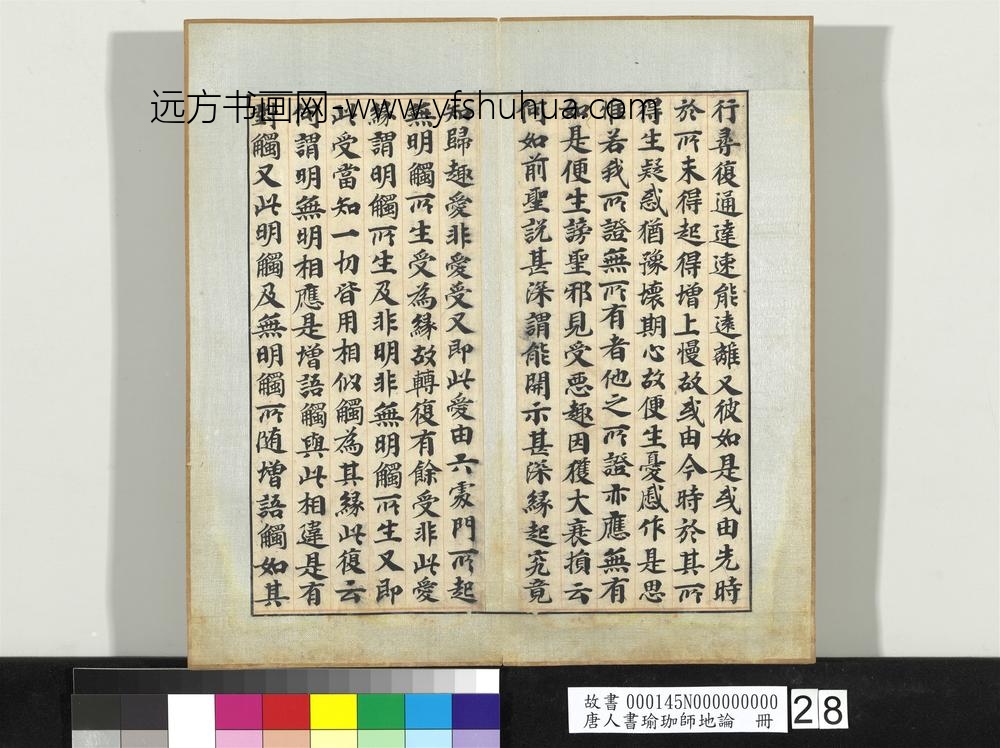 远方书画网-www.yfshuhua.com
行尋復通達速能遠離又彼如是或由先時
於所未得起得增上慢故或由今時於其所
得生疑惑猶豫壞期心故便生憂慼作是思
惟若我所證無所有者他之所證亦應無有
如是便生謗聖邪見受惡趣因獲大衰損云
何如前聖説甚深謂能開示甚深緣起究竟
知歸趣愛非愛受又即此愛由六處門所起
無明觸所生受為緣故轉復有餘受非此愛
緣謂明觸所生及非明非無明觸所生又即
此受當知一切皆用相似觸為其緣此復云
何謂明無明相應是增語觸與此相違是有
對觸又此明觸及無明觸所随增語觸如其
故書 000145N000000000
唐人書瑜珈師地論 冊
28